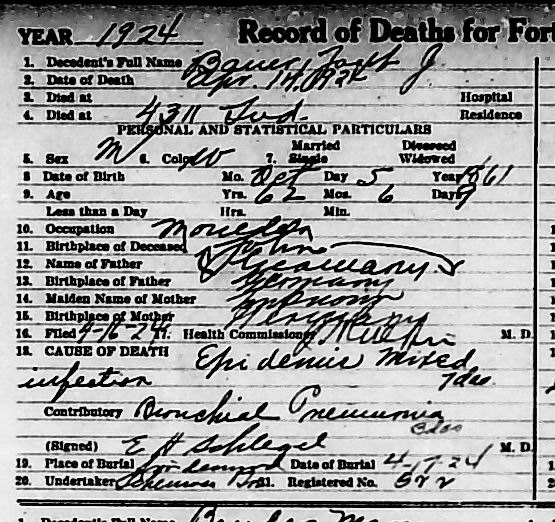 YEAR 1924 Record of Deaths for Fort
1. Decedent's Full Name Bauer J
2. Date of Death Apr. 14, 1924
3. Died at Hospital
4. Died at 4311 Residence
PERSONAL AND STATISTICAL PARTICULARS
Married Divorced
5. Sex M 6. Color W 7. Single Widowed
8 Date of Birth Mo. Oct Day 5 Year 1861
9. Age Yrs. 62 Mos. 6 Days 9
Less than a Day Hrs. Min.
10. Occupation
11. Birthplace of Deceased John
12. Name of Father Germany
13. Birthplace of Father Germany
14. Maiden Name of Mother Unknown
15. Birthplace of Mother Germany
16. Filed 4-16-24 17. Health Commissioner M. D.
18. CAUSE OF DEATH Epidemic mixed
infection 7 das
Contributory Bronchial Pneumonia
3 das
(Signed) E H Schlegel M. D.
19. Place of Burial Date of Burial 4-17-24
20. Undertaker 21. Registered No. 522
1. Decedent's Full Name